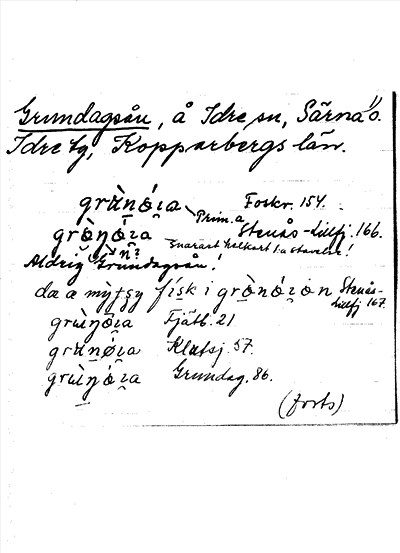 Grundagsån, å Idre sn, Särna o.
Idre tg, Kopparbergs län.
grànǿia Foskr. 154.
Prim. a
grò̀ŋǿia Stenås-Lillfj. 166.
n? snarast halvkort i 1:a stavelse!
Aldrig Grundagsån!
dæ a mỳtsy físk i grònǿian Stenås-Lillfj 167.
grùŋǿia Fjätb. 21
grùnǿia Klutsj. 57.
grùŋǿia Grundag. 86.
(forts)